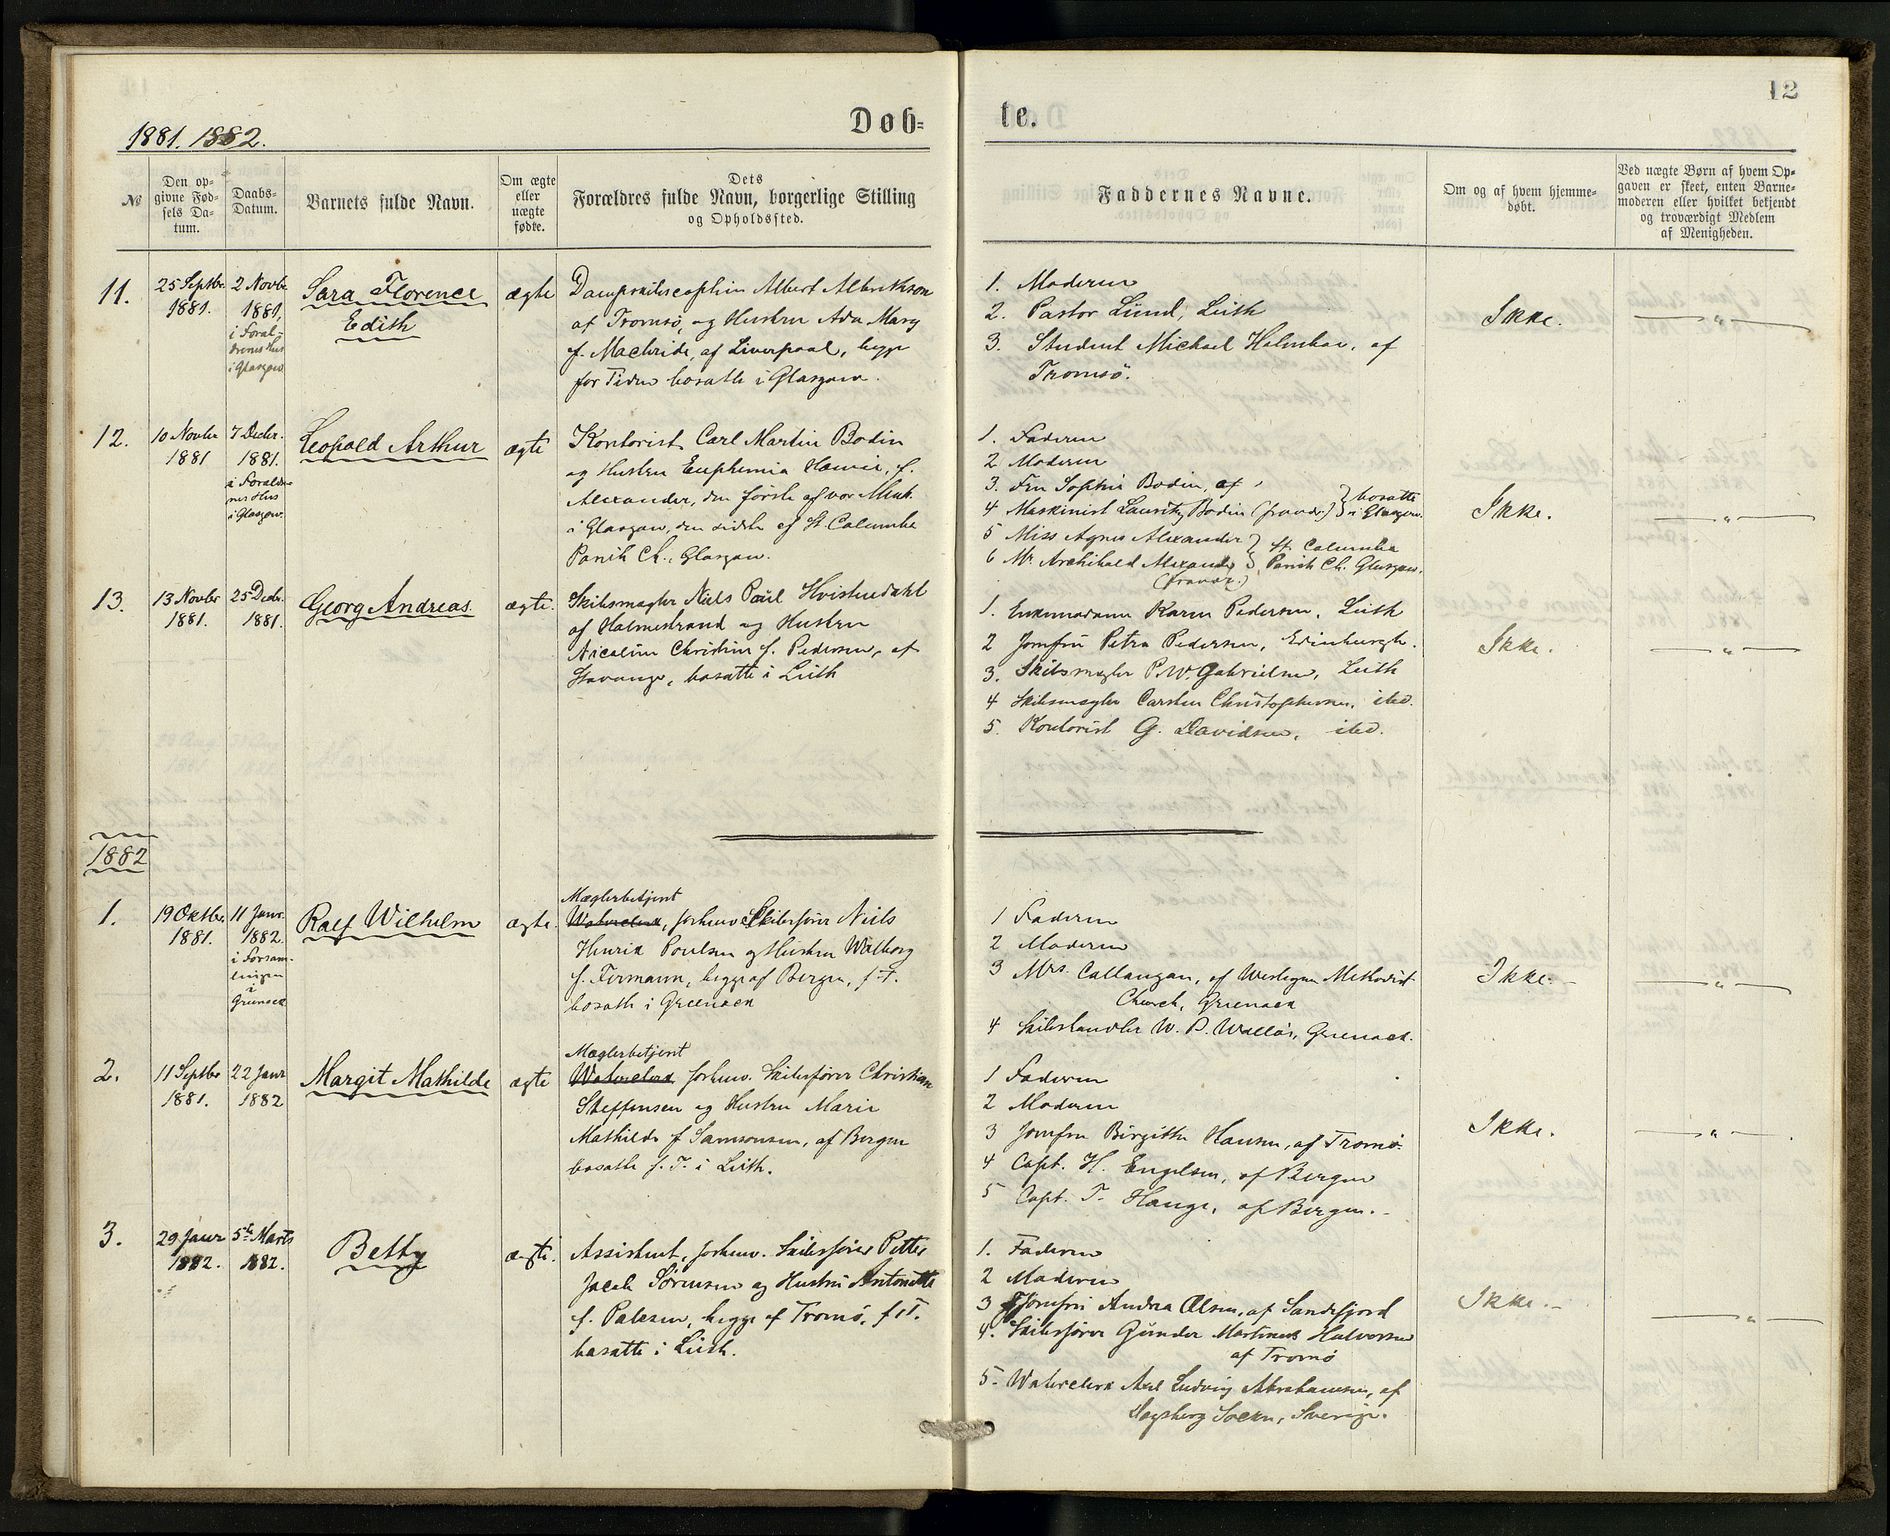 12
1881. 1882.
Døb-
te.
№
Den op-
givne Fød-
sels Da-
tum.
Daabs-
Datum.
Barnets fulde Navn.
Om ægte
eller
uægte
fødte.
Dets
Forældres fulde Navn, borgerlige Stilling
og Opholdssted.
Faddernes Navne.
Om og af hvem hjemme-
døbt.
Ved uægte Børn af hvem Op-
gaven er skeet, enten Barne-
moderen eller hvilket bekjendt
og troværdigt Medlem
af Menigheden.
11.
25 Septbr.
1881.
2 Novbr.
1881,
i Foræl-
drenes Hus
i Glasgow
Sara Florence
Edith
ægte
Dampskibscaptein Albert Albrikson
af Tromsö, og Hustru Ada Mary
f. Macbride, af Liverpool, begge
for Tiden bosatte i Glasgow.
1. Moderen
2. Pastor Lund, Leith
3. Student Michael Holmboe, af
Tromsö.
Ikke.
— " —
12.
10 Novbr
1881
7 Decbr.
1881.
i Foræld-
nes Hus
i Glasgow.
Leopold Arthur
ægte
Kontorist Carl Martin Bodin
og Hustru Euphemia f.
Alexander, den første af vor Menk.
i Glasgow, den sidste af St Columba
Parish Ch., Glasgow.
1. Faderen
2 Moderen
3. Fru Sophie Bodin, af
4 Maskinist Lauritz Bodin (fravær.) } bosatte i Glasgow.
5 Miss Agnes Alexander
6 Mr. Archibald Alexander } St. Columba Parish Ch. Glasgow.
(fravær.)
Ikke.
— " —
13.
13 Novbr
1881.
25 Decbr.
1881.
Georg Andreas.
ægte.
Skibsmægler Niels Paul Hvistendahl
af Holmestrand og Hustru
Nicoline Christine f. Pedersen, af
Stavanger, bosatte i Leith
1. Enkemadame Karen Pedersen, Leith
2 Jomfru Petra Pedersen, Edinburgh.
3. Skibsmægler P. W. Gabrielsen, Leith
4 Skibsmægler Carsten Christophersen, ibd.
5. Kontorist G. Davidsen, ibd.
Ikke.
— " —
1882
1.
19 Oktbr.
1881.
11 Janr.
1882.
i Forsam-
lingen
i
Greenock
Ralf Wilhelm
ægte.
Mæglerbetjent
Waterclerk, forhenv. Skibsfører Niels
Henrik Poulsen og Hustru Walborg
f. Fermann, begge af Bergen, f. T.
bosatte i Greenock
1 Faderen
2 Moderen
3 Mrs. Callangan, af Wesleyan Methodist
Church, Greenock
4 Skibshandler W. P. Walløs, Greenock.
Ikke.
— " —
2.
11 Septbr
1881.
22 Janr
1882
Margit Mathilde
ægte
Mæglerbetjent
Waterclerk forhenv. Skibsfører Christian
Steffensen og Hustru Marie
Mathilde f Samsonsen, af Bergen
bosatte f. T. i Leith.
1 Faderen
2 Moderen
3 Jomfru Birgitte Hansen, af Tromö
4 Capt. H. Engelsen, af Bergen
5 Capt. T. Hauge, af Bergen.
Ikke.
— " —
3.
29 Janr
1882.
5te Marts
1882.
Betty
ægte.
Assistent, forhenv. Skibsfører Petter
Jacob Sörensen og Hustru Antonette
f. Palesen, begge af Tromö, f. T.
bosatte i Leith.
1. Faderen
2 Moderen
3 Jomfru Andrea Olsen, af Sandefjord
4. Skibsfører Gunder Martinius Halvorsen
af Tromö
5. Waterclerk Axel Ludvig Abrahamsen, af
Socken, Sverige.
Ikke.
— " —